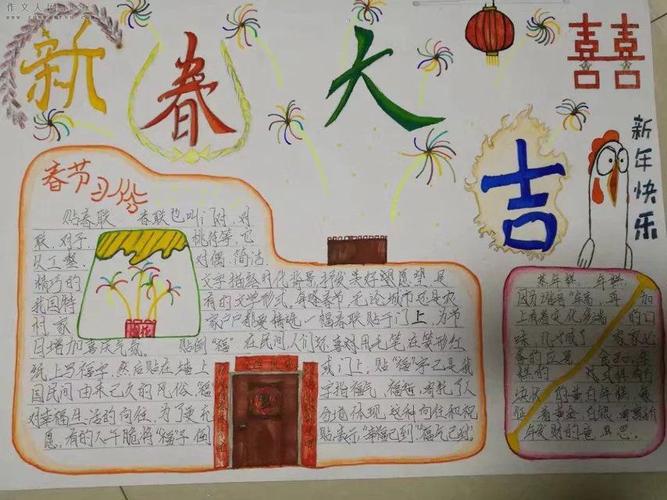 新春大吉
囍
新年快乐
春节习俗
贴春联 春联也叫门对、对
联、对子、桃符等,它
以工整、对偶、简洁、
精巧的文字描绘时代背景,抒发美好愿望,是
我国特有的文学形式。每逢春节,无论城市还是农
村,家家户户都要精选一幅春联贴于门上,为节
日增加喜庆气氛。 贴倒“福” 在民间人们还喜欢用毛笔在菱形红
纸上写福字,然后贴在墙上或门上,贴“福”字已是我
国民间由来已久的风俗。“福”字指福气、福运,寄托了人们
对幸福生活的向往,为了更
愿,有的人干脆将“福”字倒贴,表示“幸福已到”“福气已到”
蒸年糕 年糕,
因为谐音“年高”,再加
上有着变化多端的口
味,几乎成了家家必
备的应景
块状的黄白年糕,象
征着黄金、白银,寄寓新
年发财的意思。